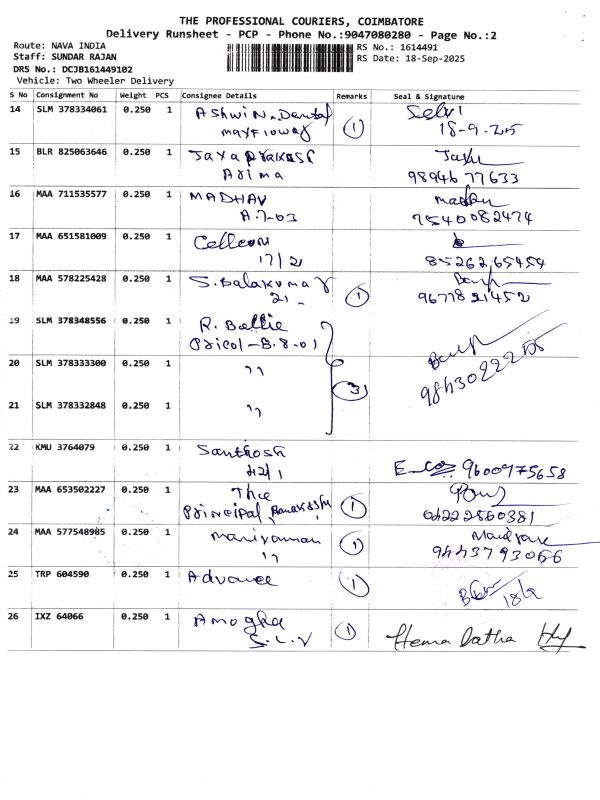 THE PROFESSIONAL COURIERS, COIMBATORE
Delivery Runsheet - PCP - Phone No.:9047080280 - Page No.:2
Route: NAVA INDIA
RS No.: 1614491
Staff: SUNDAR RAJAN
RS Date: 18-Sep-2025
DRS No.: DCJB161449102
Vehicle: Two Wheeler Delivery
S No Consignment No Weight PCS Consignee Details Remarks Seal & Signature
14 SLM 378334061 0.250 1 Ashwin Dental 1 Selvi
mayflower 18-9-25
15 BLR 825063646 0.250 1 Jayaprakash
Arima 98946 77633
16 MAA 711535577 0.250 1 MADHAV
A.7-03 7540082474
17 MAA 651581009 0.250 1 Cellcon
17/2 85262,65454
18 MAA 578225428 0.250 1 S. Balakumar 1
21 - 9677821452
19 SLM 378348556 0.250 1 R. Bellie
Pricol-B.8.01
20 SLM 378333300 0.250 1 " 3
21 SLM 378332848 0.250 1 "
22 KMU 3764079 0.250 1 Santhosh
42/1 9600975658
23 MAA 653502227 0.250 1 The 1
Principal 04222560381
24 MAA 577548985 0.250 1 maniyaman 1
" 9443793066
25 TRP 604590 0.250 1 Advance 1
18/9
26 IXZ 64066 0.250 1 Amogha 1 Hema latha
S.L.V